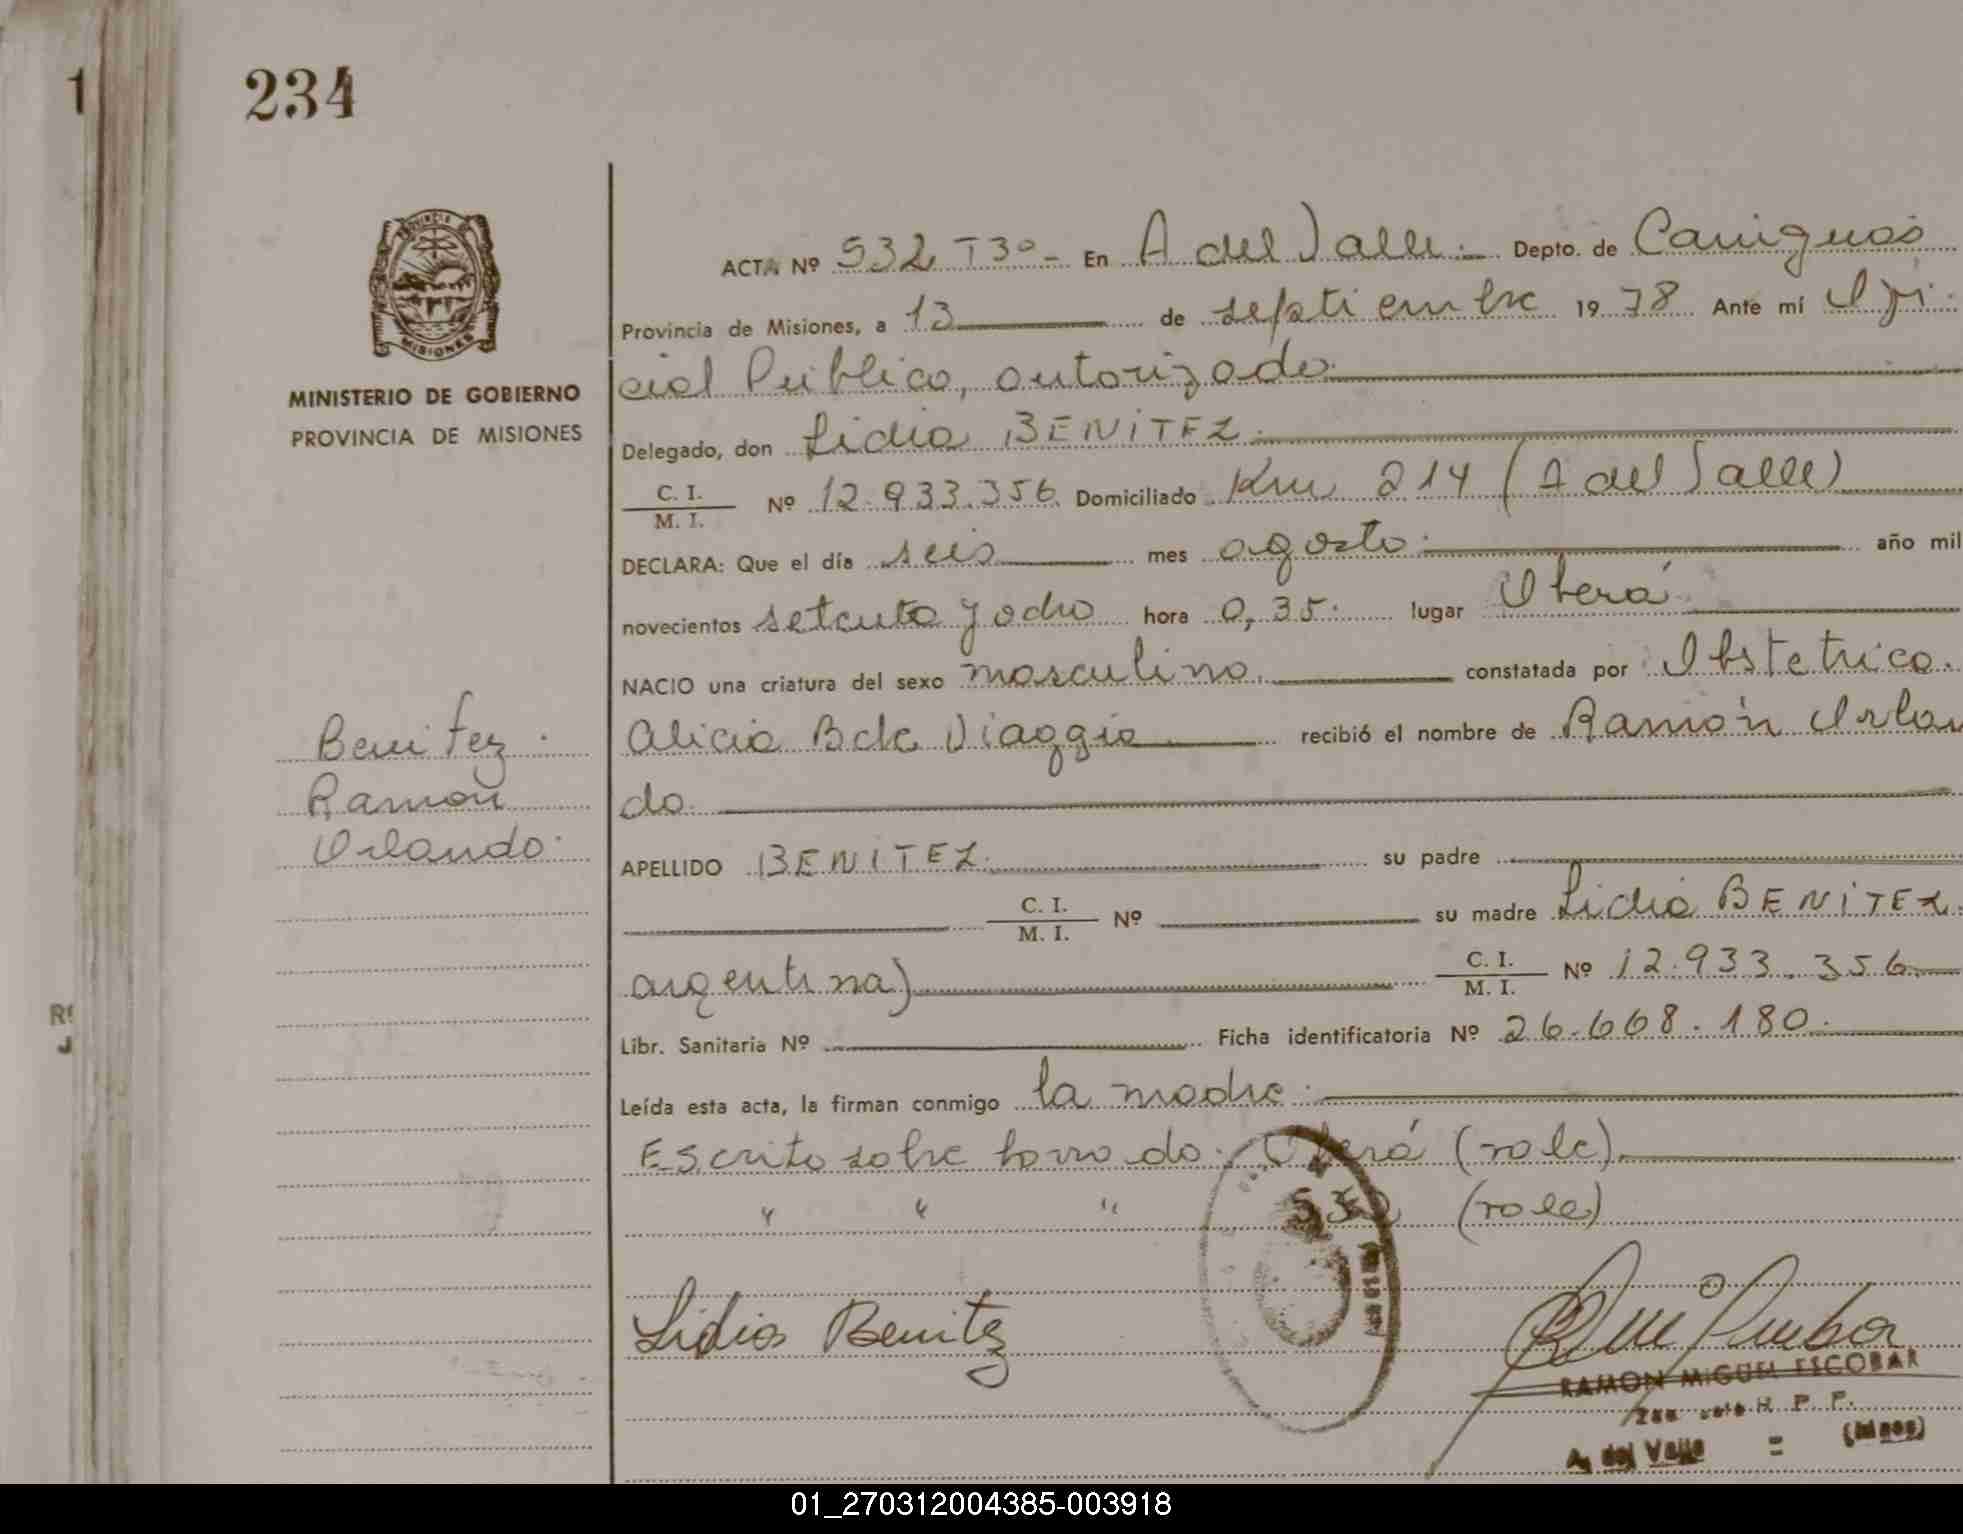 1
234
PROVINCIA
MISIONES
MINISTERIO DE GOBIERNO
PROVINCIA DE MISIONES
ACTA Nº 532 T3º- En A del Valle.- Depto. de Cainguas
Provincia de Misiones, a 13 de septiembre 19 78 Ante mí Ofi-
cial Público, autorizado.
Delegado, don Lidia BENITEZ.
C. I. / M. I. Nº 12.933.356 Domiciliado Km 214 (A del Valle)
DECLARA: Que el día seis mes agosto. año mil
novecientos setenta y ocho hora 0,35. lugar Oberá
NACIO una criatura del sexo masculino. constatada por Obstetrica.
Alicia B de Viaggio recibió el nombre de Ramón Orlan
do.
Benitez.
Ramon
Orlando.
APELLIDO BENITEZ. su padre
C. I. / M. I. Nº su madre Lidia BENITEZ.
argentina) C. I. / M. I. Nº 12.933.356
Libr. Sanitaria Nº Ficha identificatoria Nº 26.668.180.
Leída esta acta, la firman conmigo la madre.
Escrito sobre borrado: Oberá (vale)
" " " 532 (vale)
Lidia Benitez
RAMON MIGUEL ESCOBAR
R. P. P.
A. del Valle = (Mnes)
01_270312004385-003918